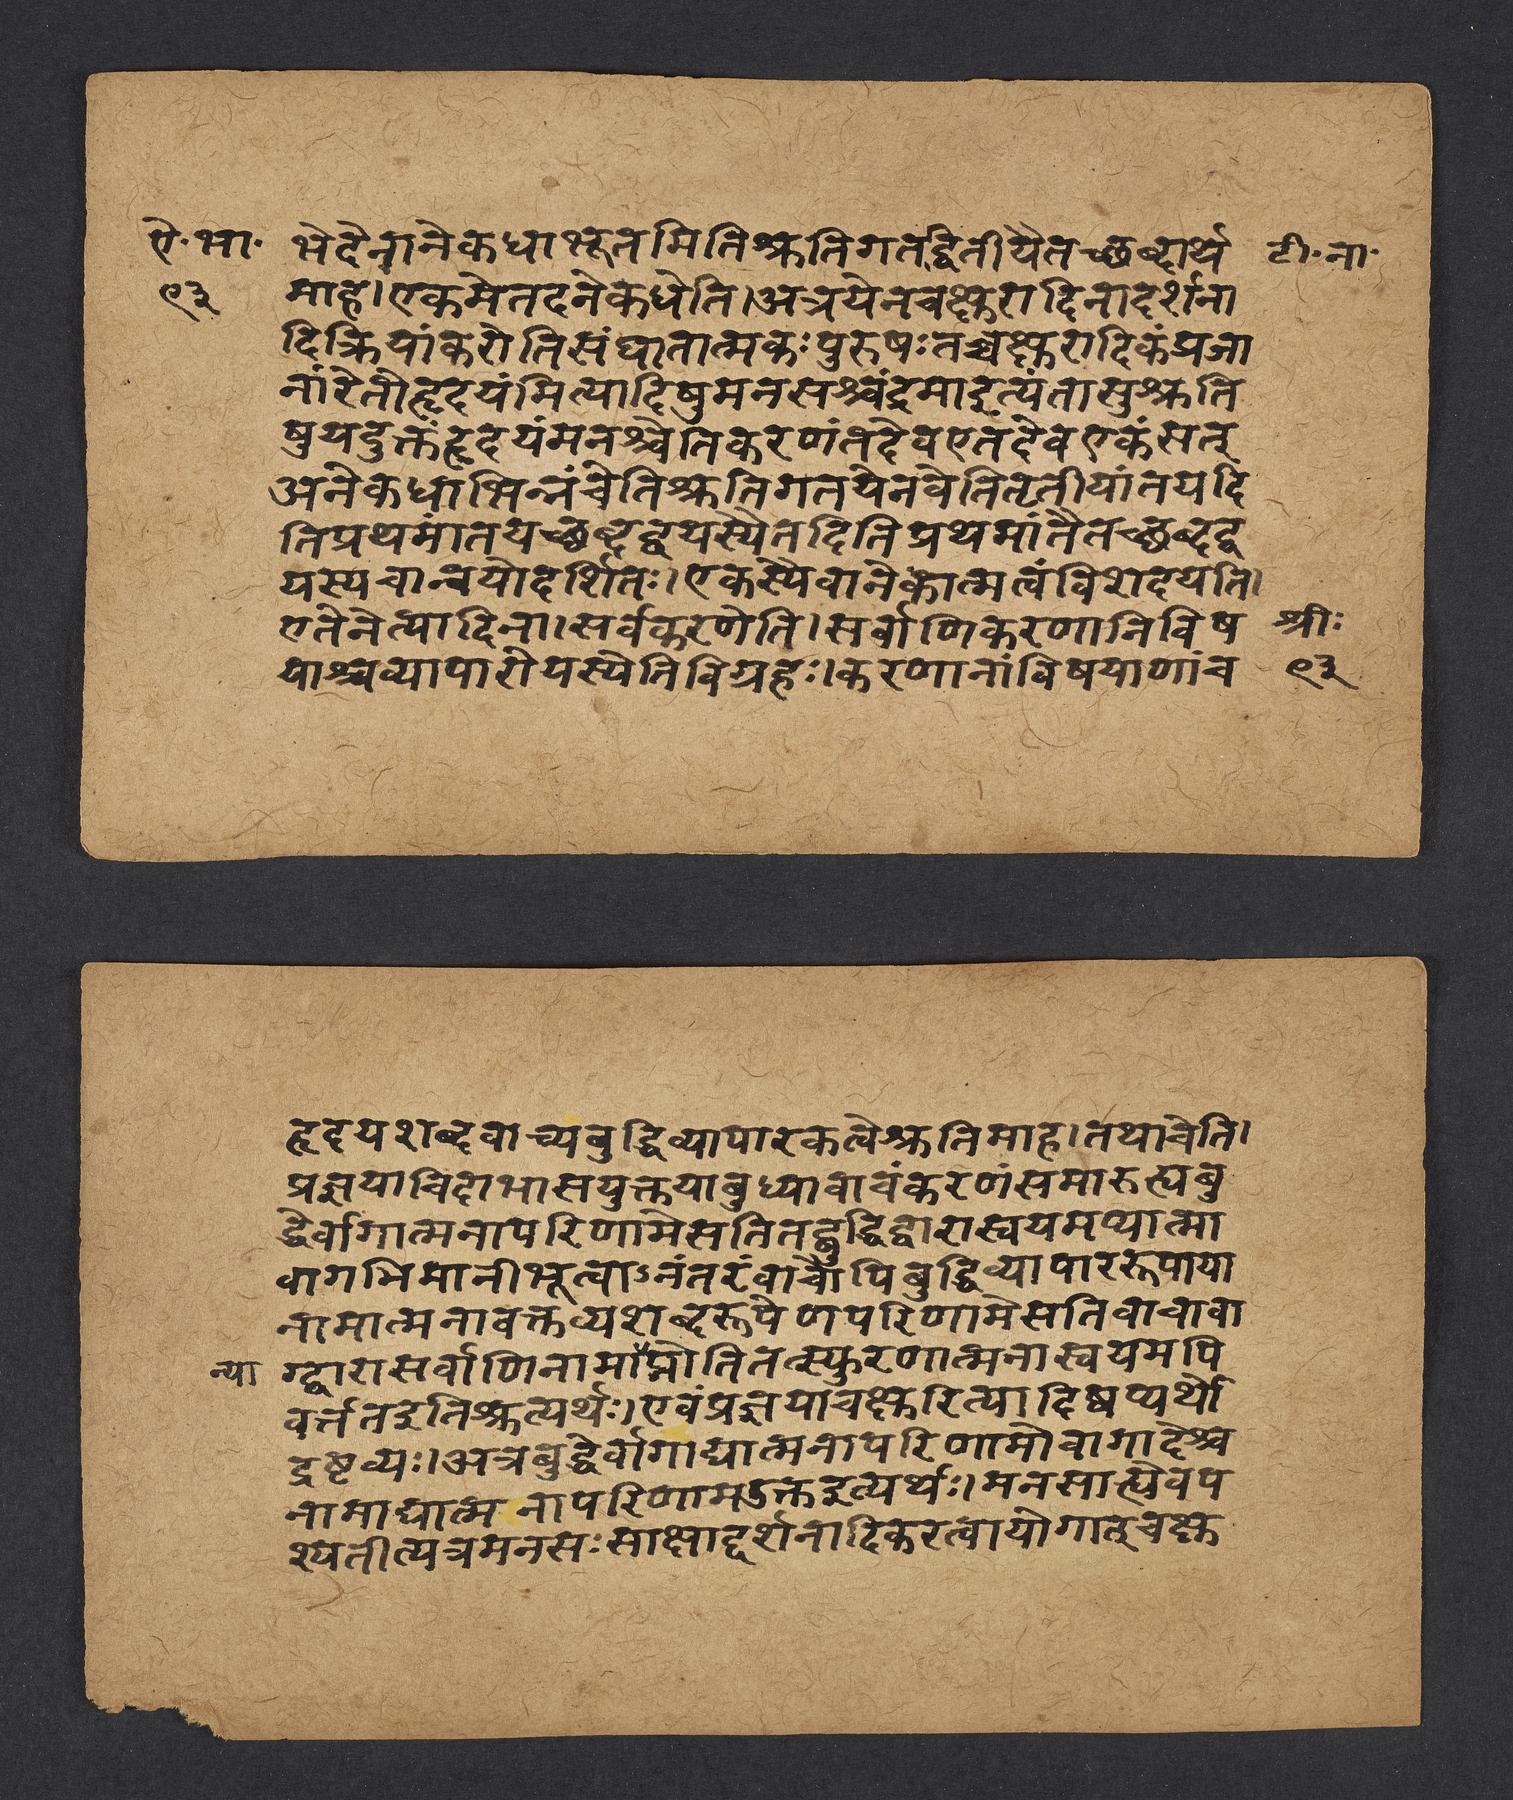 ऐ॰भा॰ भेदेनानेकधाभूतमितिश्रुतिगतद्वितीयैतच्छब्दार्थ टी॰ना॰
९३ माह।एकमेतदनेकधेति।अत्रयेनचक्षुरादिनादर्शना
दिक्रियांकरोतिसंघातात्मकःपुरुषःतच्चक्षुरादिकंप्रजा
नांरेतोहृदयंमित्यादिषुमनसश्चंद्रमाइत्यंतासुश्रुति
षुयदुक्तंहृदयंमनश्चेतिकरणंतदेवएतदेवएकंसत्
अनेकधाभिन्नंचेतिश्रुतिगतयेनवेतितृतीयांतयदि
तिप्रथमांतयच्छब्दद्वयस्यैतदितिप्रथमांतैतच्छब्दद्व
यस्यचान्वयोदर्शितः।एकस्यैवानेकात्मत्वंविशदयति।
एतेनेत्यादिना।सर्वकरणेति।सर्वाणिकरणानिविष श्रीः
याश्चव्यापारोयस्येतिविग्रहः।करणानांविषयाणांच ९३
हृदयशब्दवाच्यबुद्धिव्यापारकत्वेश्रुतिमाह।तथाचेति।
प्रज्ञयाचिदाभासयुक्तयाबुध्यावाचंकरणंसमारुह्यबु
द्धेर्वागात्मनापरिणामेसतितद्बुद्धिद्वारास्वयमप्यात्मा
वागभिमानीभूत्वाऽनंतरंवाचोपिबुद्धिव्यापाररूपाया
नामात्मनावक्तव्यशब्दरूपेणपरिणामेसतिवाचावा
न्या ग्द्वारासर्वाणिनामाप्नोतितत्स्फुरणात्मनास्वयमपि
वर्त्ततइतिश्रुत्यर्थः।एवंप्रज्ञयाचक्षुरित्यादिष्वप्यर्थो
द्रष्टव्यः।अत्रबुद्धेर्वागाद्यात्मनापरिणामोवागादेश्च
नामाद्यात्मनापरिणामउक्तइत्यर्थः।मनसाह्येवप
श्यतीत्यत्रमनसःसाक्षाद्दर्शनादिकरत्वायोगात्चक्षु